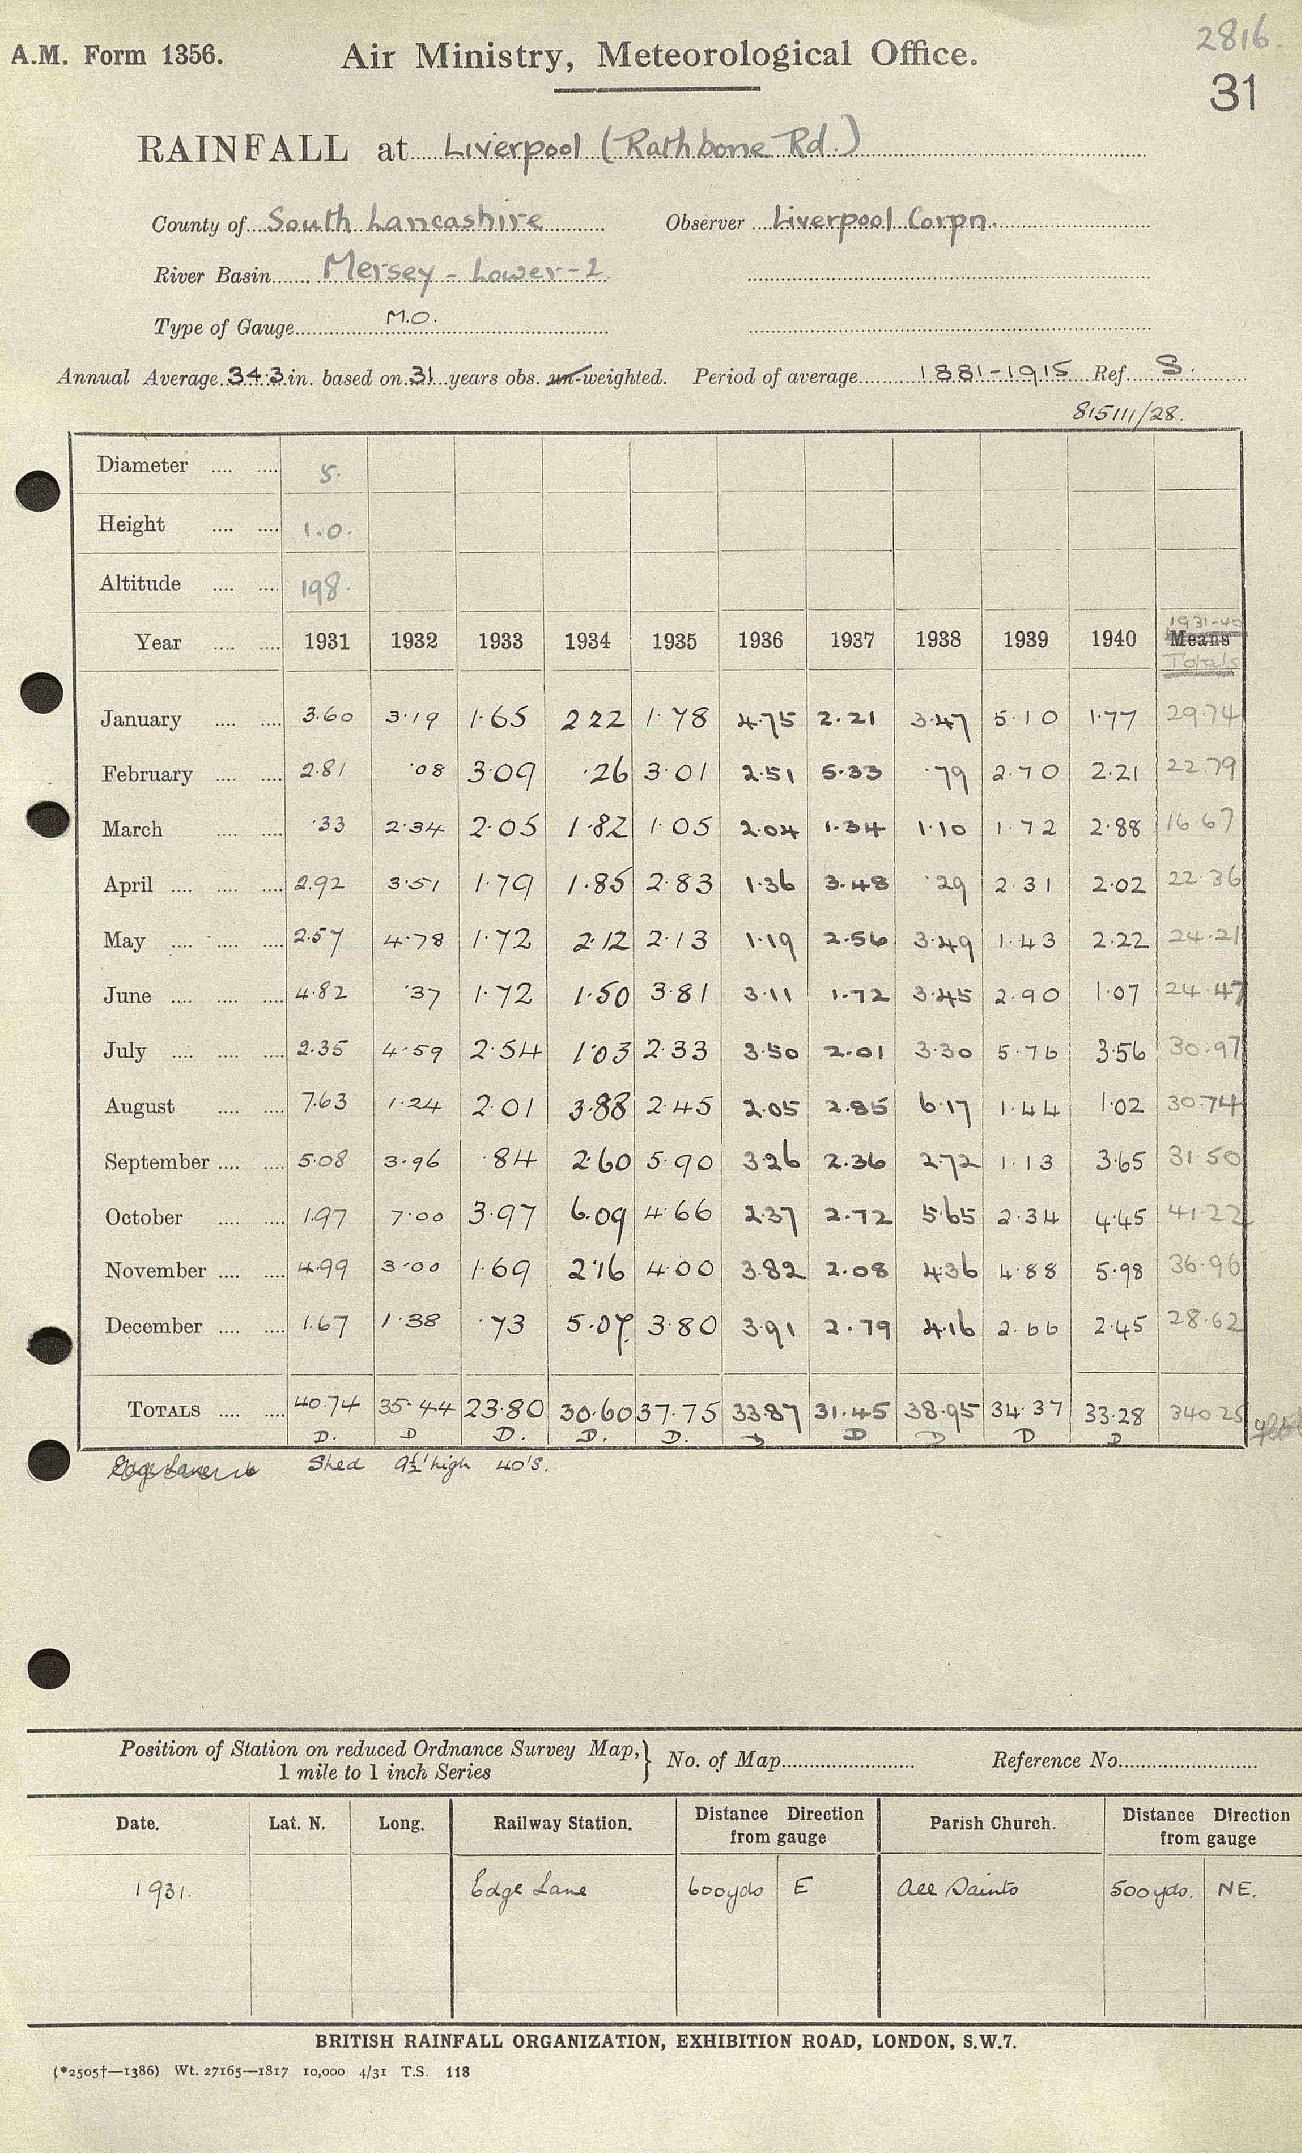 2816.
A.M. Form 1356. Air Ministry, Meteorological Office.
31
RAINFALL at Liverpool (Rathbone Rd.)
County of South Lancashire Observer Liverpool Corpn.
River Basin Mersey - Lower - 2.
Type of Gauge M.O.
Annual Average 34.3 in. based on 31 years obs. un-weighted. Period of average 1881-1915 Ref. S.
815111/28.
Diameter 5.
Height 1.0.
Altitude 198.
1931-40
Year 1931 1932 1933 1934 1935 1936 1937 1938 1939 1940 Means
Totals
January 3.60 3.19 1.65 2.22 1.78 4.75 2.21 3.47 5.10 1.77 29.74
February 2.81 .08 3.09 .26 3.01 2.51 5.33 .79 2.70 2.21 22.79
March .33 2.34 2.05 1.82 1.05 2.04 1.34 1.10 1.72 2.88 16.67
April 2.92 3.51 1.79 1.85 2.83 1.36 3.48 .29 2.31 2.02 22.36
May 2.57 4.78 1.72 2.12 2.13 1.19 2.56 3.49 1.43 2.22 24.21
June 4.82 .37 1.72 1.50 3.81 3.11 1.72 3.45 2.90 1.07 24.47
July 2.35 4.59 2.54 1.03 2.33 3.50 2.01 3.30 5.76 3.56 30.97
August 7.63 1.24 2.01 3.88 2.45 2.05 2.85 6.17 1.44 1.02 30.74
September 5.08 3.96 .84 2.60 5.90 3.26 2.36 2.72 1.13 3.65 31.50
October 1.97 7.00 3.97 6.09 4.66 2.37 2.72 5.65 2.34 4.45 41.22
November 4.99 3.00 1.69 2.16 4.00 3.82 2.08 4.36 4.88 5.98 36.96
December 1.67 1.38 .73 5.07 3.80 3.91 2.79 4.16 2.66 2.45 28.62
TOTALS 40.74 35.44 23.80 30.60 37.75 33.87 31.45 38.95 34.37 33.28 340.25
D. D D. D. D. D D D D D
Shed 9½' high 40'S.
Position of Station on reduced Ordnance Survey Map, } No. of Map Reference No.
1 mile to 1 inch Series
Date. Lat. N. Long. Railway Station. Distance Direction from gauge Parish Church. Distance Direction from gauge
1931. Edge Lane 600yds E All Saints 500yds. NE.
BRITISH RAINFALL ORGANIZATION, EXHIBITION ROAD, LONDON, S.W.7.
(*2505†—1386) Wt. 27165—1817 10,000 4/31 T.S. 118